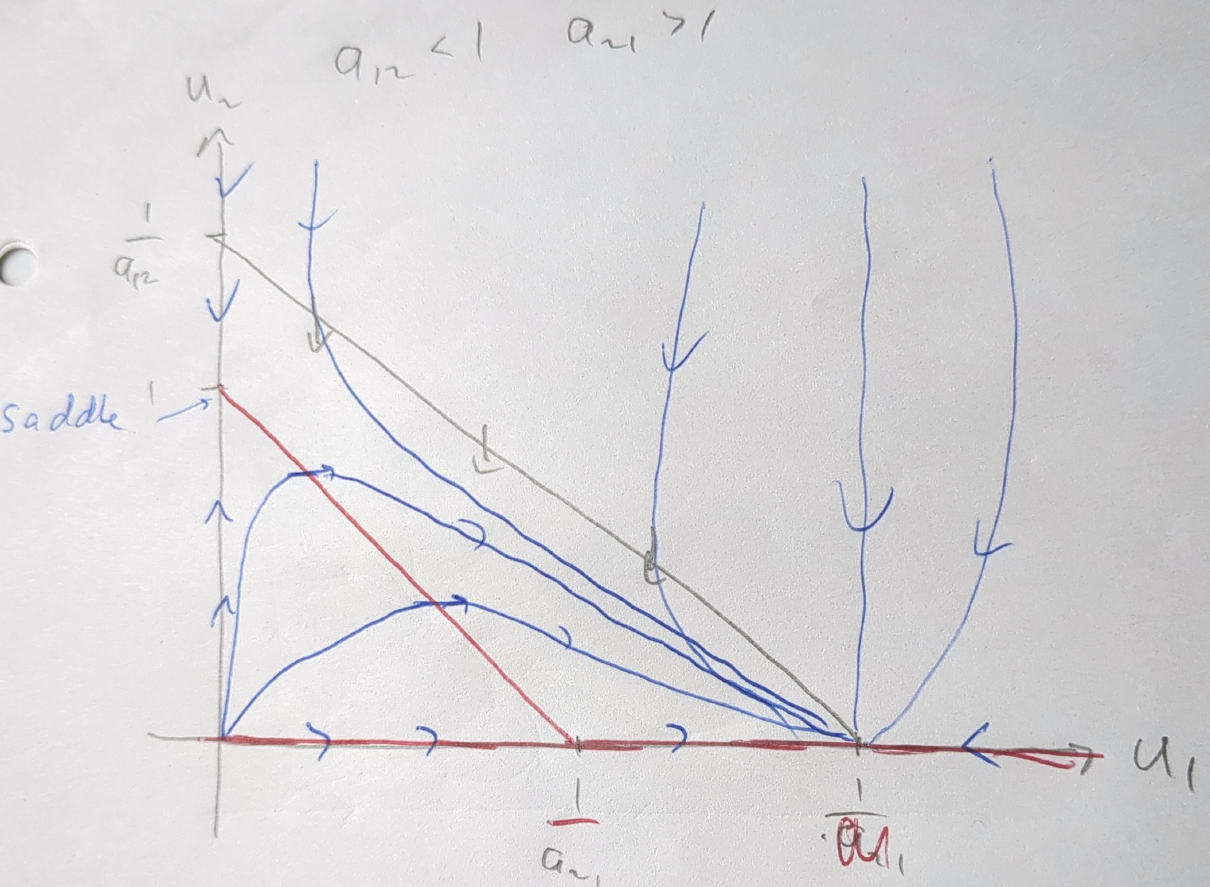 a₁₂ < 1 a₂₁ > 1
u₂
1
a₁₂
1
saddle
u₁
1
a₂₁
1